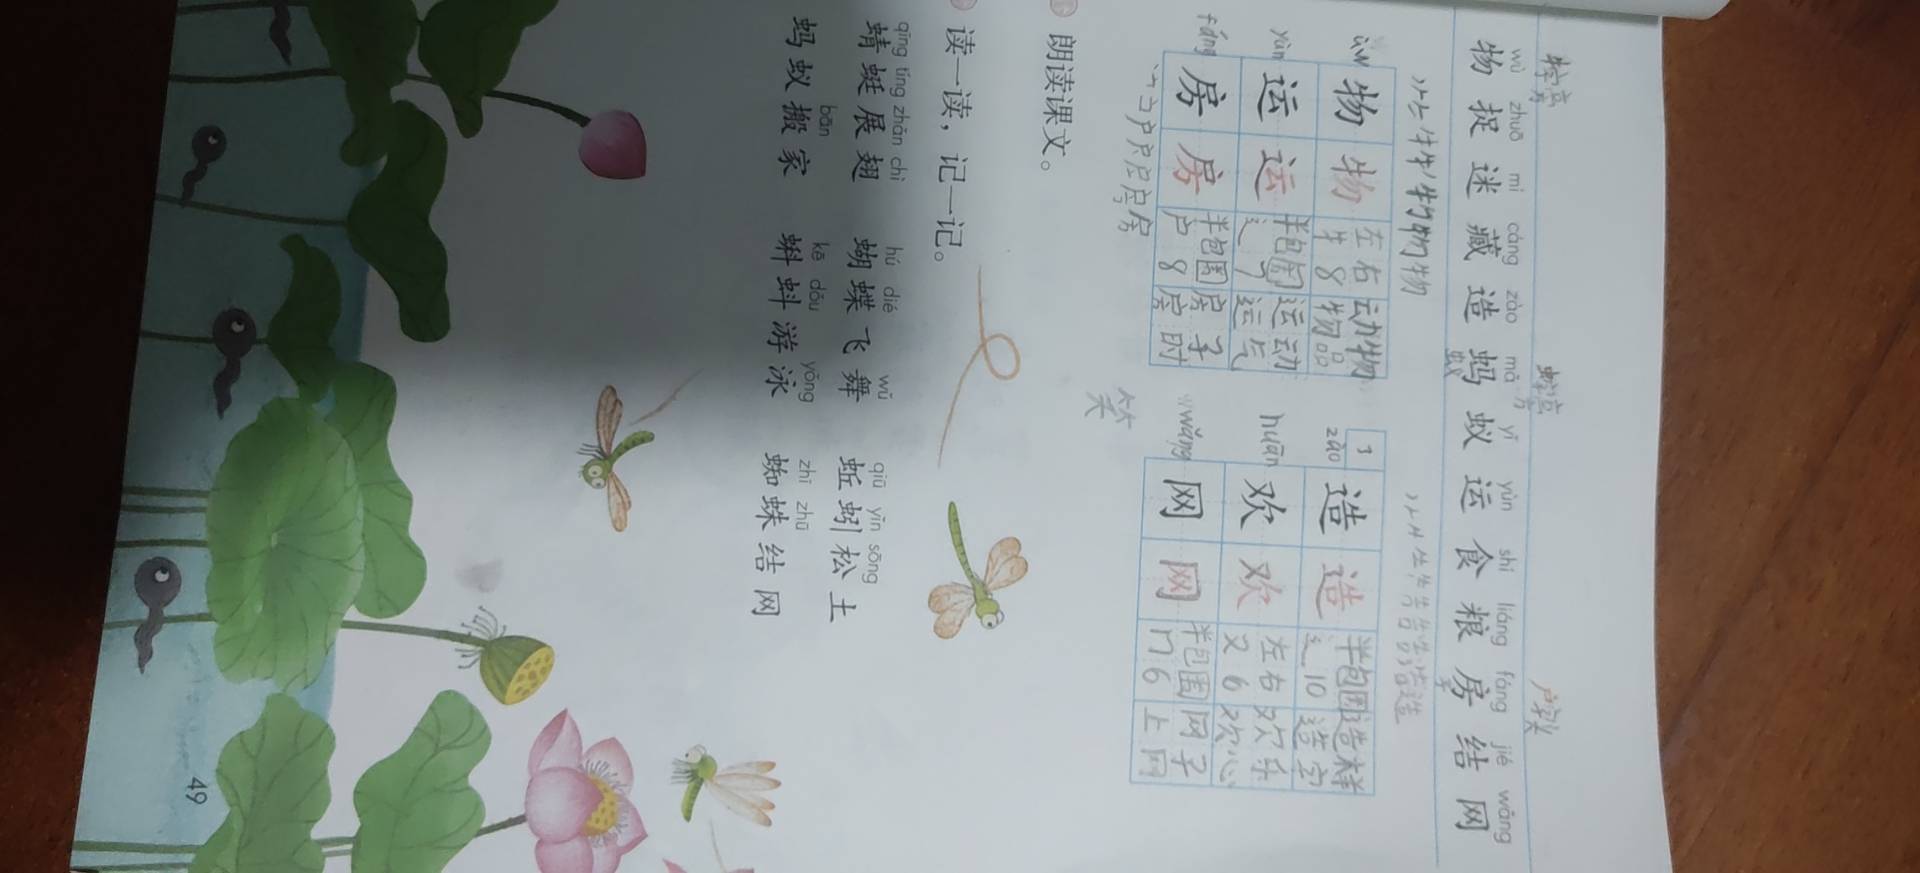 户字头
wù zhuō mí cáng zào mǎ yǐ yùn shí liáng fáng jié wǎng
物 捉 迷 藏 造 蚂 蚁 运 食 粮 房 结 网
物 物 左右 动物
牛 8 物品
zào 造 造 半包围 造样
辶 10 造字
yùn 运 运 半包围 运动
辶 7 运气
huān 欢 欢 左右 欢乐
又 6 欢心
fáng 房 房 半包围 房子
户 8 房时
wǎng 网 网 半包围 网子
冂 6 上网
笑
朗读课文。
读一读，记一记。
qīng tíng zhǎn chì hú dié wǔ qiū yǐn sōng
蜻蜓展翅 蝴蝶飞舞 蚯蚓松土
bān kē dǒu yǒng zhī zhū
蚂蚁搬家 蝌蚪游泳 蜘蛛结网
49